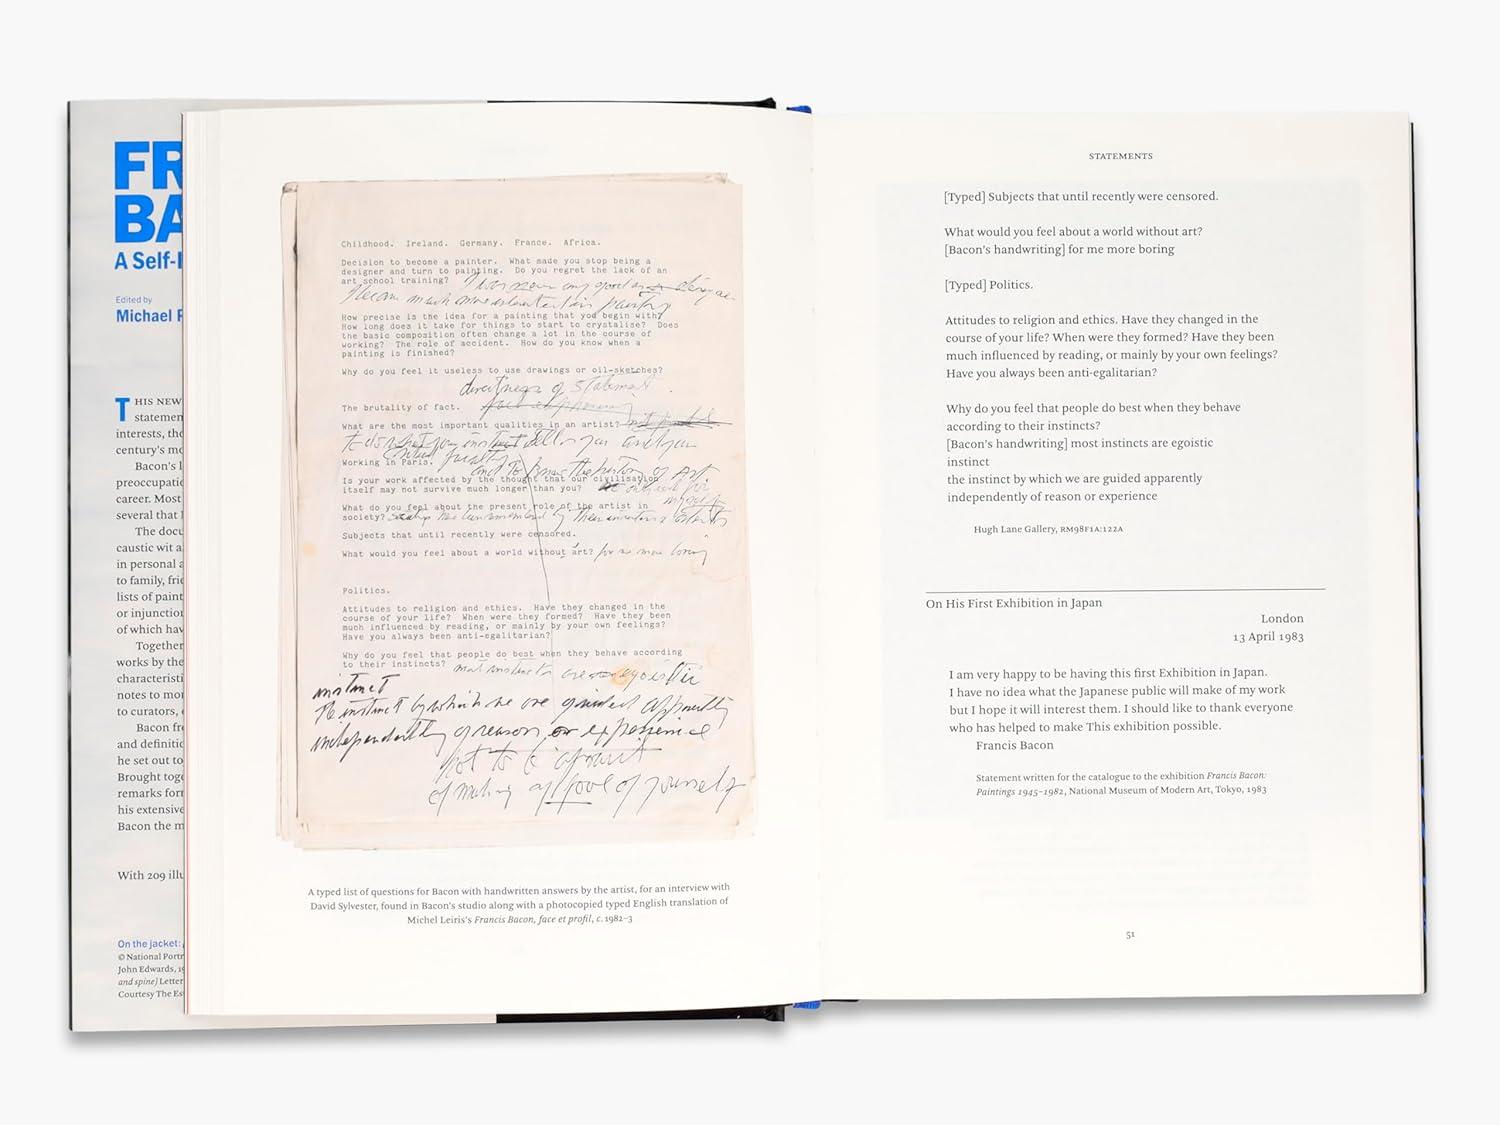 FR
BA
A Self-
Edited by
Michael
THIS NEW
statemen
interests, the
century's mo
Bacon's l
preoccupatio
career. Most
several that
The docu
caustic wit a
in personal a
to family, frie
lists of paint
or injunction
of which hav
Together
works by the
characteristi
notes to mo
to curators,
Bacon fr
and definitio
he set out to
Brought toge
remarks for
his extensive
Bacon the m
With 209 illu
On the jacket:
© National Portr
John Edwards, 19
and spine) Letter
Courtesy The Es
Childhood. Ireland. Germany. France. Africa.
Decision to become a painter. What made you stop being a
designer and turn to painting. Do you regret the lack of an
art school training? I was never any good as a designer
I became much more interested in painting
How precise is the idea for a painting that you begin with?
How long does it take for things to start to crystalise? Does
the basic composition often change a lot in the course of
working? The role of accident. How do you know when a
painting is finished?
Why do you feel it useless to use drawings or oil-sketches?
directness of statement
The brutality of fact.
What are the most important qualities in an artist?
to do what your instinct tells you
Working in Paris.
and to know the history of Art
Is your work affected by the thought that our civilisation
itself may not survive much longer than you?
What do you feel about the present role of the artist in
society?
Subjects that until recently were censored.
What would you feel about a world without art? for me more boring
Politics.
Attitudes to religion and ethics. Have they changed in the
course of your life? When were they formed? Have they been
much influenced by reading, or mainly by your own feelings?
Have you always been anti-egalitarian?
Why do you feel that people do best when they behave according
to their instincts? most instincts are egoistic
instinct
the instinct by which we are guided apparently
independently of reason or experience
not to be afraid
of making a fool of yourself
A typed list of questions for Bacon with handwritten answers by the artist, for an interview with
David Sylvester, found in Bacon's studio along with a photocopied typed English translation of
Michel Leiris's Francis Bacon, face et profil, c. 1982–3
STATEMENTS
[Typed] Subjects that until recently were censored.
What would you feel about a world without art?
[Bacon's handwriting] for me more boring
[Typed] Politics.
Attitudes to religion and ethics. Have they changed in the
course of your life? When were they formed? Have they been
much influenced by reading, or mainly by your own feelings?
Have you always been anti-egalitarian?
Why do you feel that people do best when they behave
according to their instincts?
[Bacon's handwriting] most instincts are egoistic
instinct
the instinct by which we are guided apparently
independently of reason or experience
Hugh Lane Gallery, RM98F1A:122A
On His First Exhibition in Japan
London
13 April 1983
I am very happy to be having this first Exhibition in Japan.
I have no idea what the Japanese public will make of my work
but I hope it will interest them. I should like to thank everyone
who has helped to make This exhibition possible.
Francis Bacon
Statement written for the catalogue to the exhibition Francis Bacon:
Paintings 1945–1982, National Museum of Modern Art, Tokyo, 1983
51